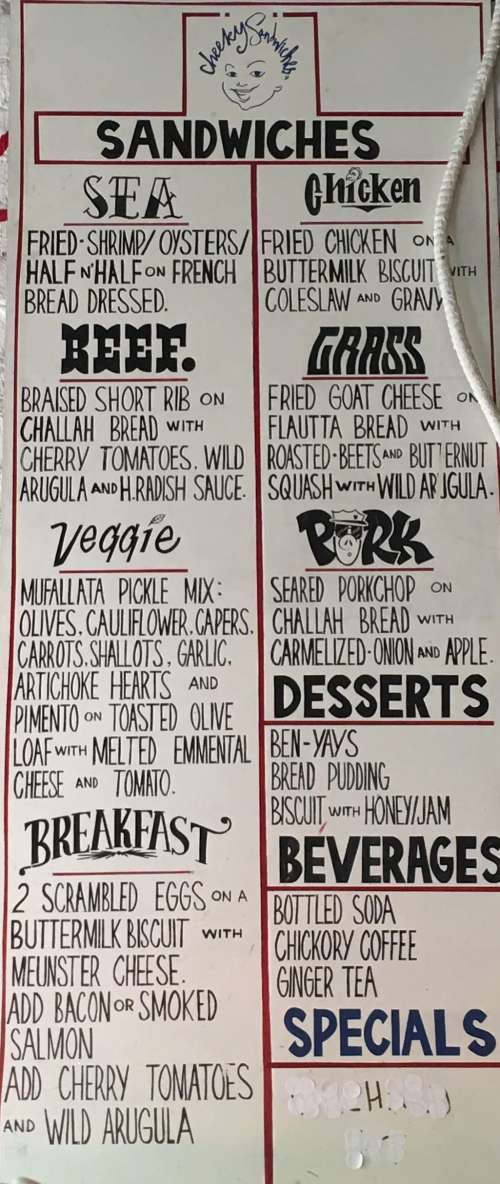 Cheeky Sandwiches
SANDWICHES
SEA
FRIED-SHRIMP/OYSTERS/
HALF N' HALF ON FRENCH
BREAD DRESSED.
BEEF.
BRAISED SHORT RIB ON
CHALLAH BREAD WITH
CHERRY TOMATOES. WILD
ARUGULA AND H.RADISH SAUCE.
Veggie
MUFALLATA PICKLE MIX:
OLIVES, CAULIFLOWER, CAPERS,
CARROTS, SHALLOTS, GARLIC,
ARTICHOKE HEARTS AND
PIMENTO ON TOASTED OLIVE
LOAF WITH MELTED EMMENTAL
CHEESE AND TOMATO.
BREAKFAST
2 SCRAMBLED EGGS ON A
BUTTERMILK BISCUIT WITH
MEUNSTER CHEESE.
ADD BACON OR SMOKED
SALMON
ADD CHERRY TOMATOES
AND WILD ARUGULA
Chicken
FRIED CHICKEN ON A
BUTTERMILK BISCUIT WITH
COLESLAW AND GRAVY
GRASS
FRIED GOAT CHEESE ON
FLAUTTA BREAD WITH
ROASTED-BEETS AND BUTTERNUT
SQUASH WITH WILD ARUGULA.
PORK
SEARED PORKCHOP ON
CHALLAH BREAD WITH
CARMELIZED-ONION AND APPLE.
DESSERTS
BEN-YAYS
BREAD PUDDING
BISCUIT WITH HONEY/JAM
BEVERAGES
BOTTLED SODA
CHICKORY COFFEE
GINGER TEA
SPECIALS